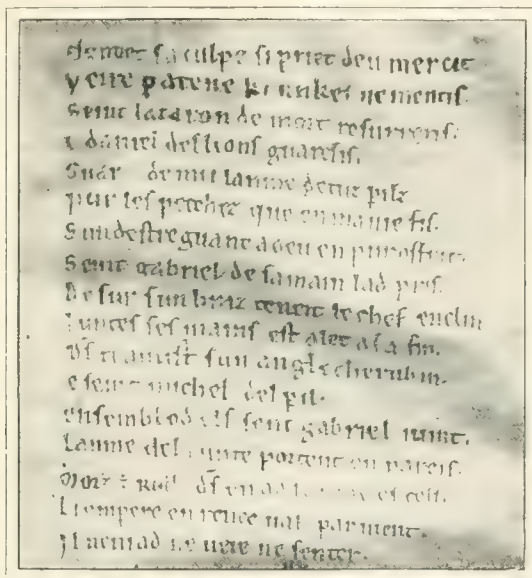 cleimet sa culpe si priet deu mercit
veire patene ki unkes ne mentis
seint lazaron de mort resurrexis.
e daniel des lions guaresis.
guar de mei lanme de tuz pilz
pur les pecchez que en ma vie fis.
sun destre guant a deu en puroffrit.
seint gabriel de sa main lad pris.
desur sun braz teneit le chef enclin
juntes ses mains est alet a sa fin.
ds tramist sun angle cherubin.
e seint michel del pil.
ensemblod els sent gabriel i uint.
lanme del cunte portent en pareis.
morz e roll ds en ad es cels.
li empere en rences uals paruient.
il nen i ad ne ueie ne senter.